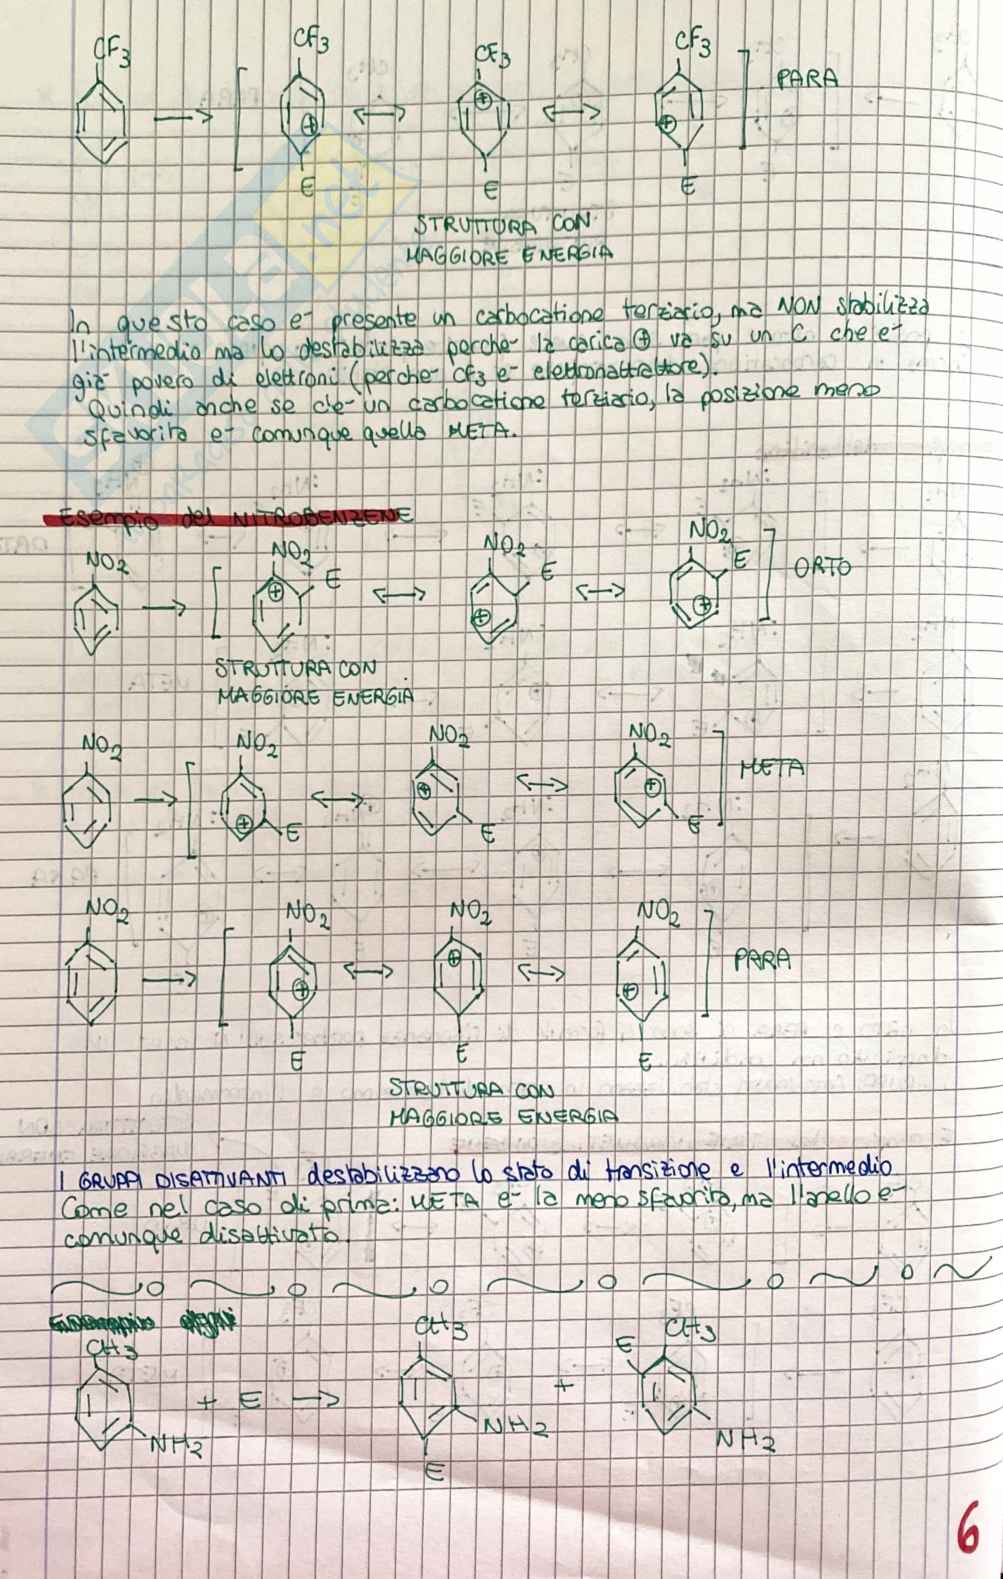 CF3
CF3
CF3
CF3
PARA
E
E
E
STRUTTURA CON
MAGGIORE ENERGIA
In questo caso e- presente un carbocatione terziario, ma NON stabilizza
l'intermedio ma lo destabilizza perche- la carica ⊕ va su un C che e-
gia- povero di elettroni (perche- CF3 e- elettronattrattore).
Quindi anche se c'e- un carbocatione terziario, la posizione meno
sfavorita e- comunque quella META.
Esempio del NITROBENZENE
NO2
NO2
E
NO2
E
NO2
E
ORTO
STRUTTURA CON
MAGGIORE ENERGIA
NO2
NO2
NO2
NO2
META
E
E
E
NO2
NO2
NO2
NO2
PARA
E
E
E
STRUTTURA CON
MAGGIORE ENERGIA
I GRUPPI DISATTIVANTI destabilizzano lo stato di transizione e l'intermedio
Come nel caso di prima: META e- la meno sfavorita, ma l'anello e-
comunque disattivato.
CH3
CH3
E
CH3
+ E
+
NH2
NH2
NH2
E
6